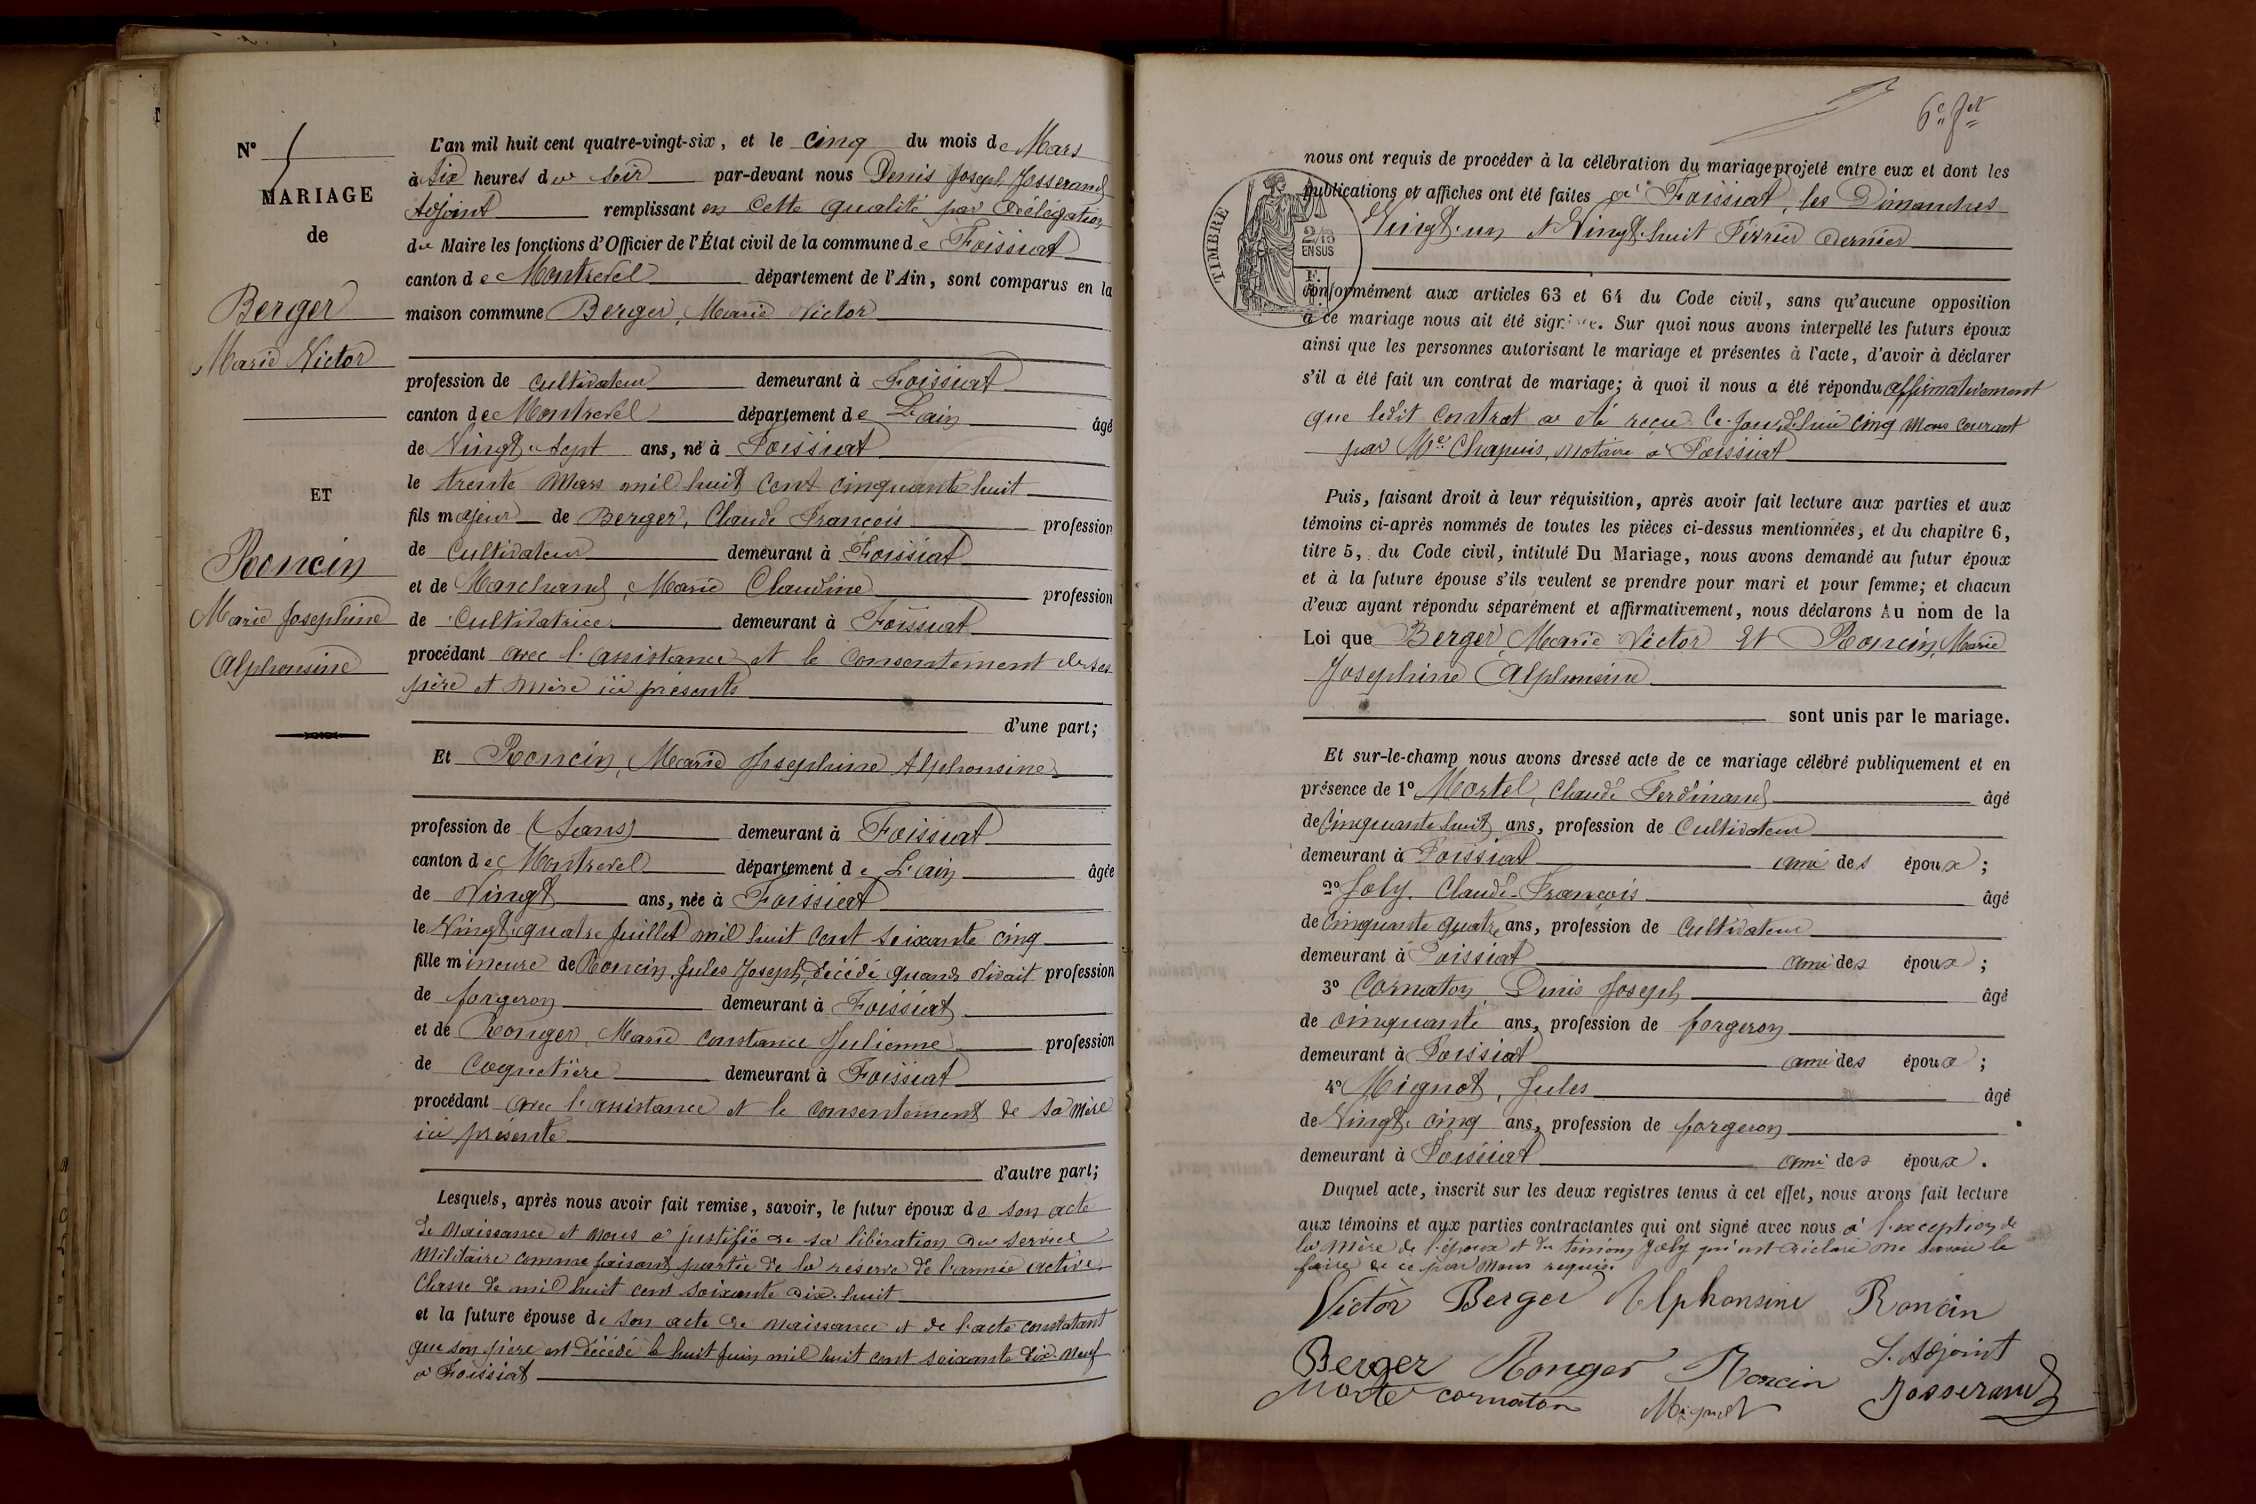 N° 5
MARIAGE
de
Berger
Marie Victor
ET
Roncin
Marie Josephine
Alphonsine
L'an mil huit cent quatre-vingt-six, et le cinq du mois de Mars
à Six heures du soir par-devant nous Denis Joseph Josserand
Adjoint remplissant en cette qualité par délégation
du Maire les fonctions d'Officier de l'État civil de la commune de Foissiat
canton de Montrevel département de l'Ain, sont comparus en la
maison commune Berger, Marie Victor
profession de cultivateur demeurant à Foissiat
canton de Montrevel département de L'ain âgé
de Vingt-sept ans, né à Foissiat
le trente Mars mil huit cent cinquante huit
fils majeur de Berger, Claude François profession
de cultivateur demeurant à Foissiat
et de Marchand, Marie Claudine profession
de Cultivatrice demeurant à Foissiat
procédant avec l'assistance et le consentement de ses
père et mère ici présents
d'une part;
Et Roncin, Marie Josephine Alphonsine
profession de (Sans) demeurant à Foissiat
canton de Montrevel département de L'ain âgée
de Vingt ans, née à Foissiat
le Vingt-quatre Juillet mil huit cent soixante cinq
fille mineure de Roncin, Jules Joseph, décédé quand vivait profession
de forgeron demeurant à Foissiat
et de Ronger, Marie Constance Julienne profession
de Coquetière demeurant à Foissiat
procédant avec l'assistance et le consentement de sa mère
ici présente
d'autre part;
Lesquels, après nous avoir fait remise, savoir, le futur époux de son acte
de naissance et nous a justifié de sa libération du service
Militaire comme faisant partie de la réserve de l'armée active
Classe de mil huit cent soixante dix-huit
et la future épouse de son acte de naissance et de l'acte constatant
que son père est décédé le huit Juin mil huit cent soixante dix-neuf
à Foissiat
6e fet
nous ont requis de procéder à la célébration du mariage projeté entre eux et dont les
publications et affiches ont été faites à Foissiat, les Dimanches
Vingt-un et Vingt-huit Février dernier
TIMBRE
2/10
EN SUS
conformément aux articles 63 et 64 du Code civil, sans qu'aucune opposition
à ce mariage nous ait été signifiée. Sur quoi nous avons interpellé les futurs époux
ainsi que les personnes autorisant le mariage et présentes à l'acte, d'avoir à déclarer
s'il a été fait un contrat de mariage; à quoi il nous a été répondu affirmativement
que ledit contrat a été reçu ce-jourd'hui cinq Mars courant
par Me Chapuis, notaire à Foissiat
Puis, faisant droit à leur réquisition, après avoir fait lecture aux parties et aux
témoins ci-après nommés de toutes les pièces ci-dessus mentionnées, et du chapitre 6,
titre 5, du Code civil, intitulé Du Mariage, nous avons demandé au futur époux
et à la future épouse s'ils veulent se prendre pour mari et pour femme; et chacun
d'eux ayant répondu séparément et affirmativement, nous déclarons Au nom de la
Loi que Berger, Marie Victor et Roncin, Marie
Josephine Alphonsine
sont unis par le mariage.
Et sur-le-champ nous avons dressé acte de ce mariage célébré publiquement et en
présence de 1° Mortel, Claude Ferdinand âgé
de Cinquante huit ans, profession de Cultivateur
demeurant à Foissiat ami des époux;
2° Joly, Claude-François âgé
de Cinquante quatre ans, profession de Cultivateur
demeurant à Foissiat ami des époux;
3° Cornaton Denis Joseph âgé
de cinquante ans, profession de forgeron
demeurant à Foissiat ami des époux;
4° Mignot, Jules âgé
de Vingt-cinq ans, profession de forgeron
demeurant à Foissiat ami des époux.
Duquel acte, inscrit sur les deux registres tenus à cet effet, nous avons fait lecture
aux témoins et aux parties contractantes qui ont signé avec nous à l'exception de
la mère de l'époux et du témoin Joly qui ont déclaré ne savoir le
faire de ce par nous requis.
Victor Berger Alphonsine Roncin
Berger Ronger Roncin L'Adjoint
Mortel cornaton Mignot Josserand